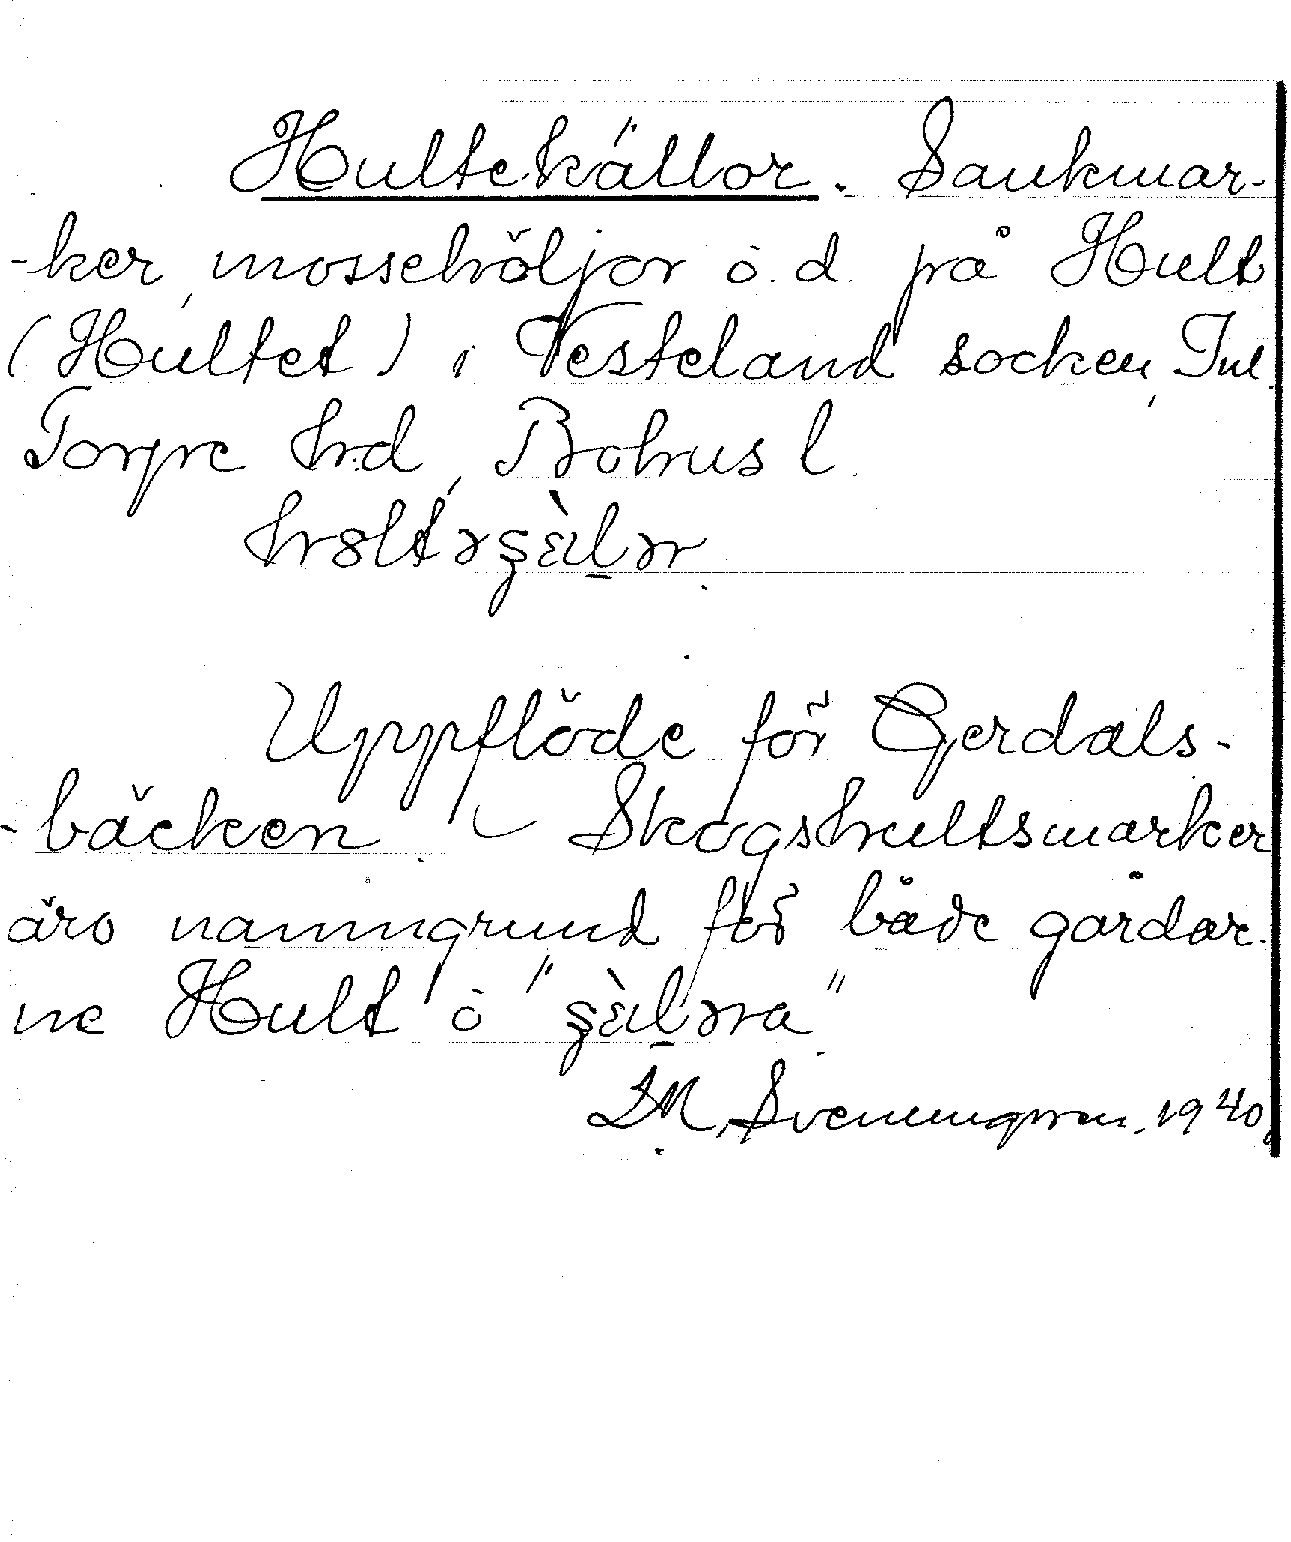 Hultekällor. Sankmar-
-ker, mossehöljor o.d. på Hult
(Hultet) i Vesteland socken, Inl.
Torpe hrd, Bohus l.
Uppflöde för Gerdals-
-bäcken. Skogshultsmarker
äro namngrund för både gårdar-
ne Hult o "
1940.